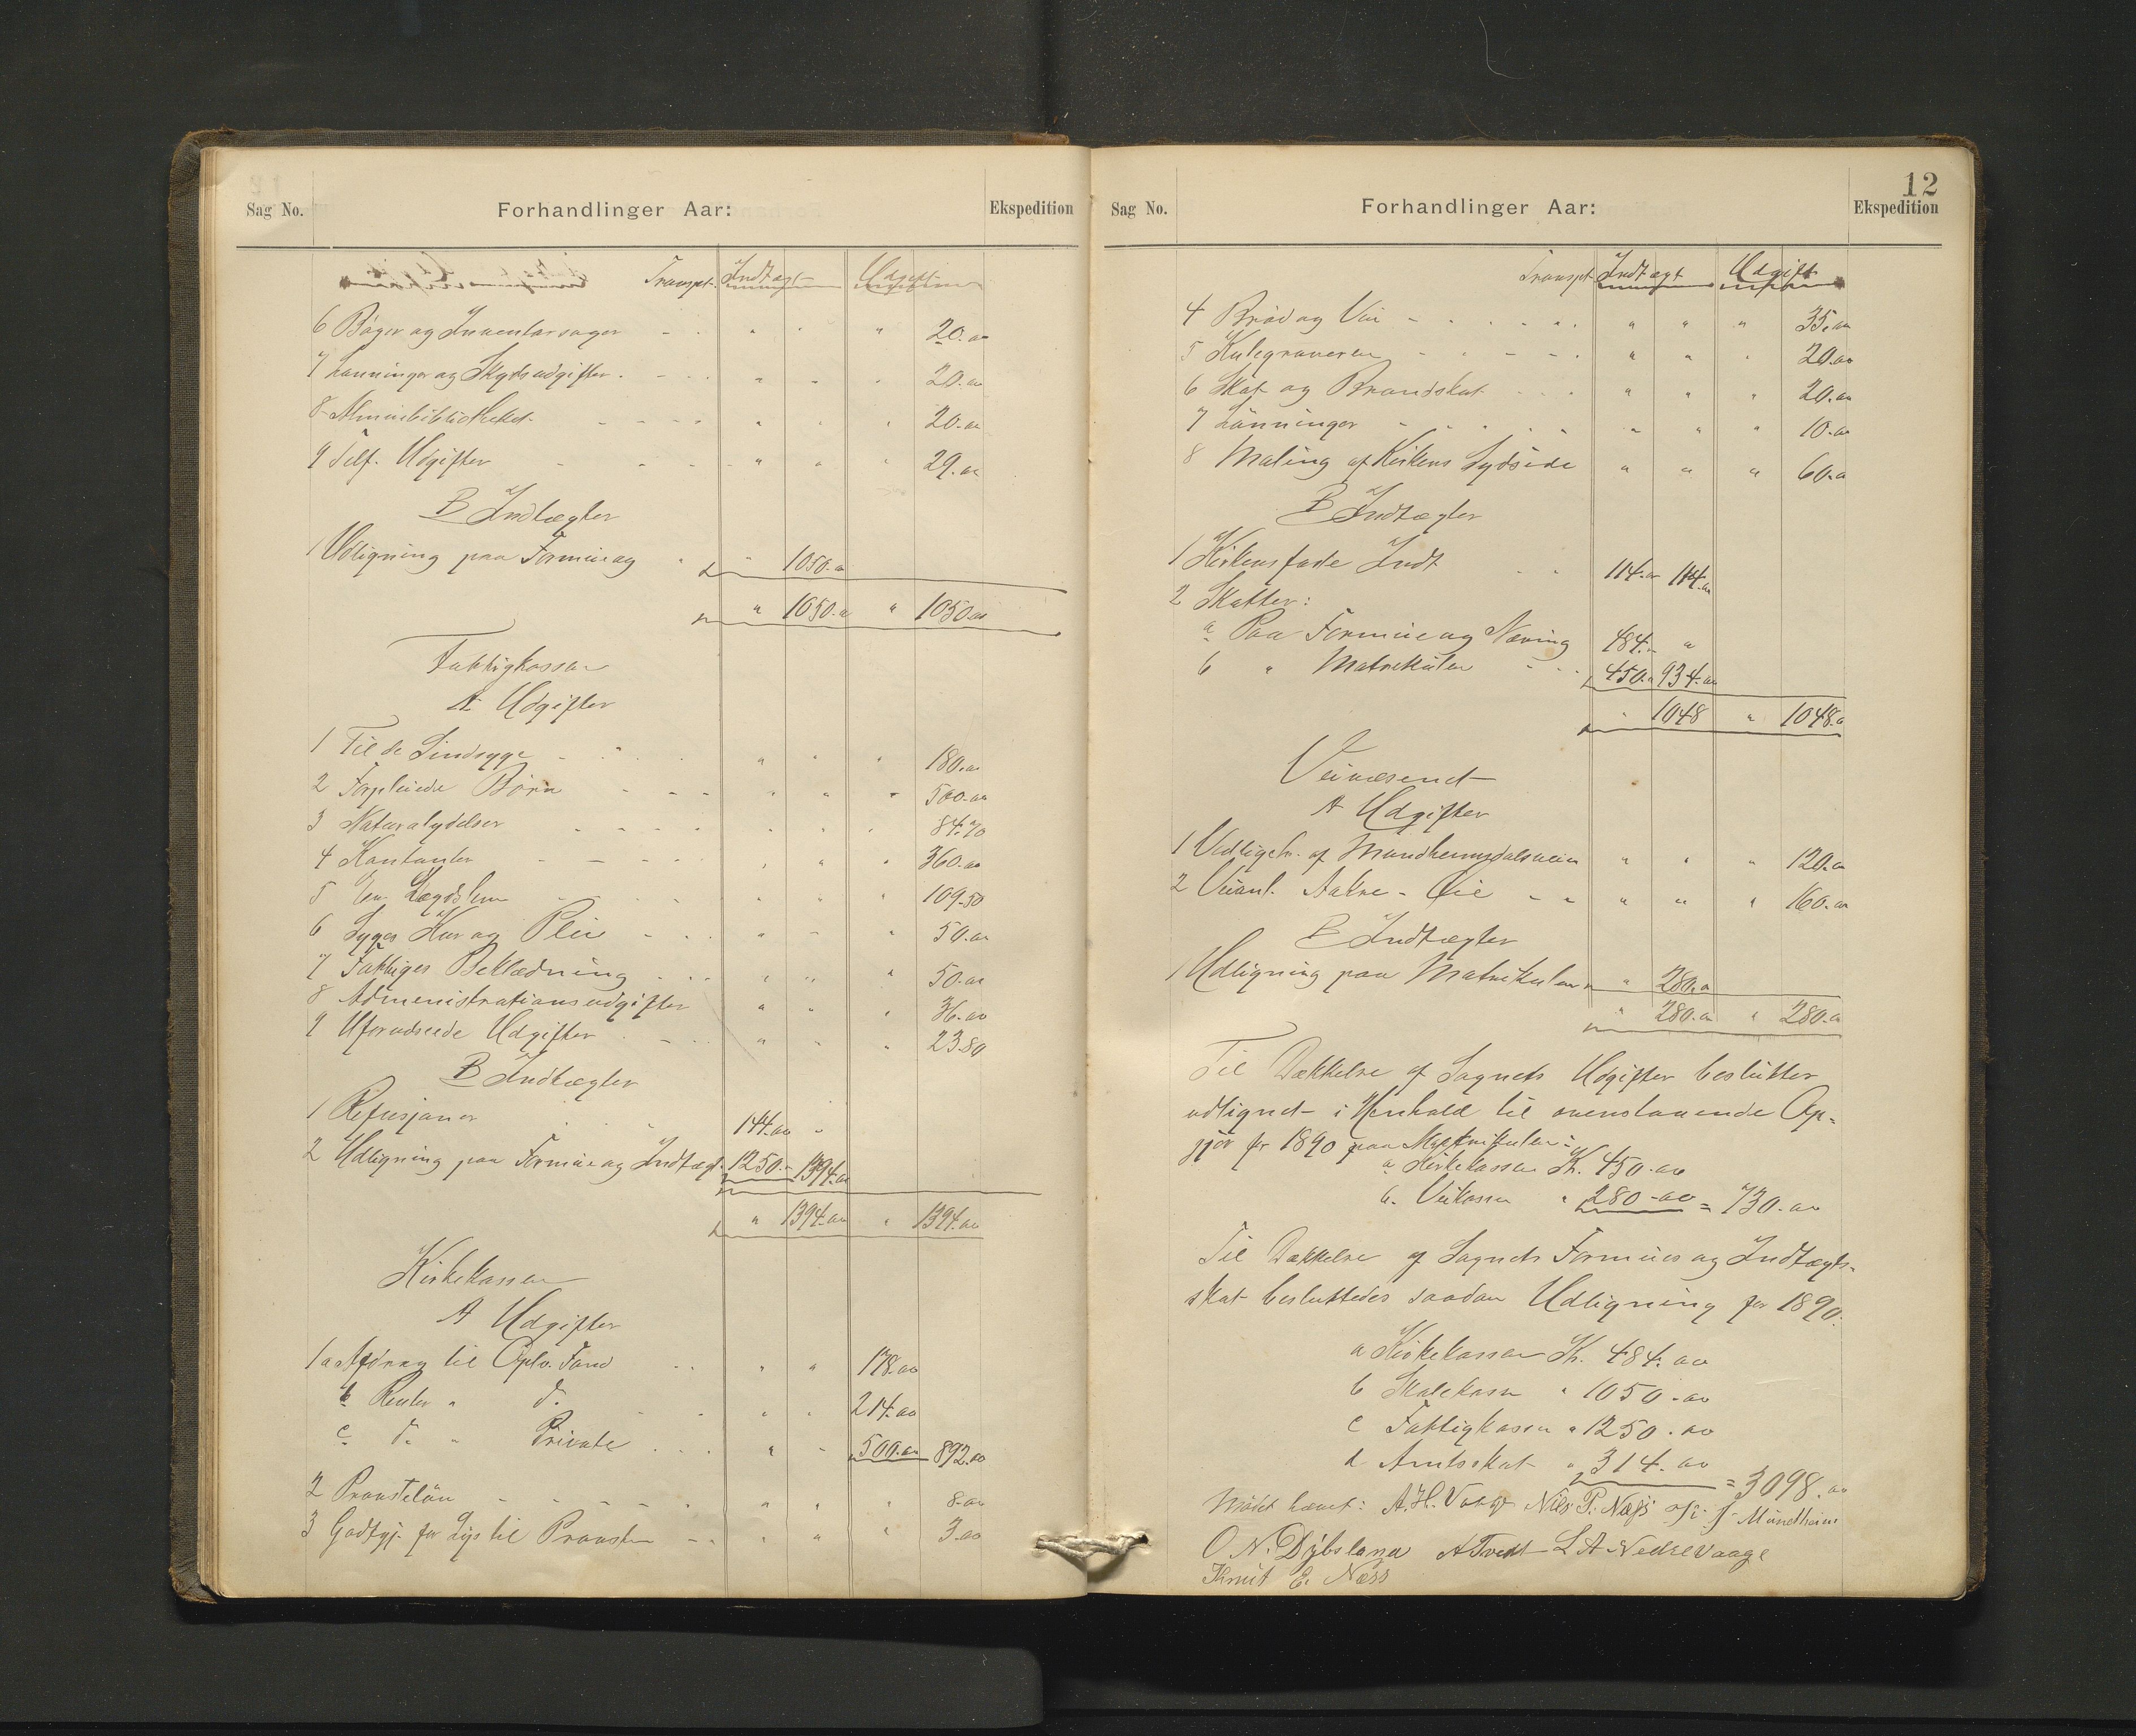 Sag No. Forhandlinger Aar: Ekspedition
Transpt. Indtægt Udgift
6 Bøger og Inventarsager " " " 20.00
7 Lønninger og Skydsudgifter " " " 20.00
8 Almuebibliotheket " " " 20.00
9 Tilf. Udgifter " " " 29.00
B Indtægter
1 Udligning paa Formue og " 1050.00
" 1050.00 " 1050.00
Fattigkassen
A Udgifter
1 Til de Sindsyge " " " 180.00
2 Forpleiede Børn " " " 500.00
3 Naturalydelser " " " 84.70
4 Kontanter " " " 360.00
5 Lægdslem " " " 109.50
6 Syges Kur og Pleie " " " 50.00
7 Fattiges Beklædning " " " 50.00
8 Administrationsudgifter " " " 36.00
9 Uforudseede Udgifter " " " 23.80
B Indtægter
1 Refusjoner 144.00 "
2 Udligning paa Formue og Indtægt 1250.- 1394.00
" 1394.00 " 1394.00
Kirkekassen
A Udgifter
1 a Afdrag til Oplv. Fond " " 178.00
b Renter " d. " " 214.00
c d. " Private " " 500.00 892.00
2 " " " 8.00
3 Godtgj. for Lys til Prousten " " " 3.00
12
Sag No. Forhandlinger Aar: Ekspedition
Transpt. Indtægt Udgift
4 Brød og Vin " " " 35.00
5 Kulegraveren " " " 20.00
6 Skat og Brandskat " " " 20.00
7 Lønninger " " " 10.00
8 Maling af Kirkens Sydside " " " 60.00
B Indtægter
1 Kirkens faste Indt 114.00 114.00
2 Skatter:
a Paa Formue og Næring 484.- "
b " Matrikulen 450.- 934.00
" 1048 " 1048.00
Veivæsenet
A Udgifter
1 Vedligeh. af Mundheimsdalsveien " " " 120.00
2 Veianl. Aakre - Øie " " " 160.00
B Indtægter
1 Udligning paa Matrikulen " 280.00
" 280.00 " 280.00
Til Dækkelse af Sognets Udgifter beslutter
udlignet i Henhold til ovenstaaende Op-
gjør for 1890 paa Matrikulen:
a Kirkekassen Kr. 450.00
b. Veikassen " 280.00 = 730.00
Til Dækkelse af Sognets Formues og Indtægts-
skat besluttedes saadan Udligning for 1890:
a Kirkekassen Kr. 484.00
b Skolekassen " 1050.00
c Fattigkassen " 1250.00
d Amtsskat " 314.00 = 3098.00
Mødet hævet: A.H. Nils P. Næss Mundheim
O N. Dybsland A Tvedt L A Nedrevaage
Knut E. Næss